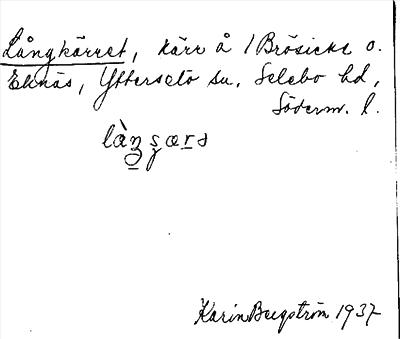 Långkärret, kärr å 1 Brösicke o.
Eknäs, Ytterselö sn, Selebo hd,
Söderm. l.
Karin Bergström 1937